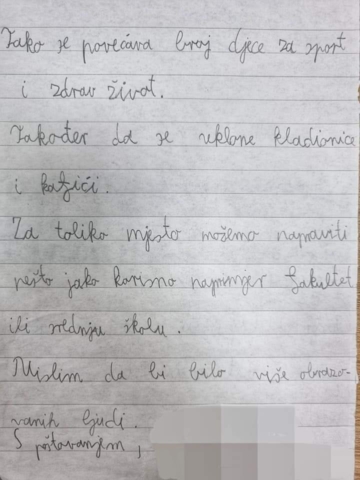 Tako se povećava broj djece za sport
i zdrav život.
Također da se uklone kladionice
i kafići.
Za toliko mjesto možemo napraviti
nešto jako korisno naprimjer fakultet
ili srednju školu.
Mislim da bi bilo više obrazo-
vanih ljudi.
S poštovanjem,